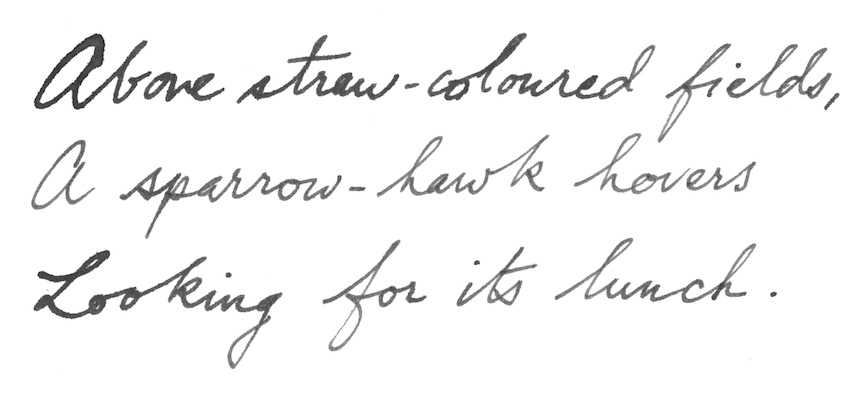 Above straw-coloured fields,
A sparrow-hawk hovers
Looking for its lunch.